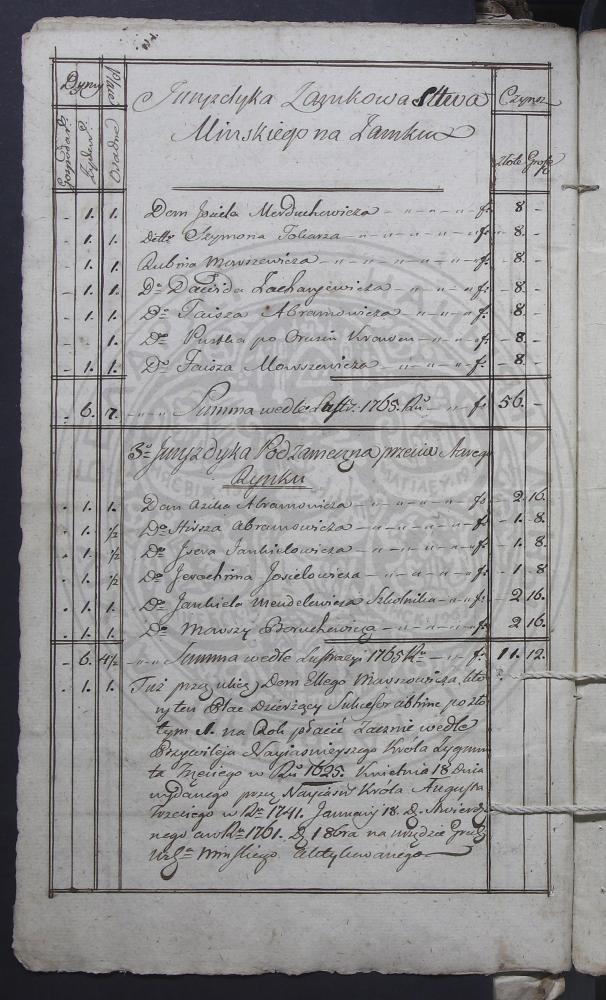 Dymy Place Juryzdyka Zamkowa Sttwa Czynsz
Minskiego na Zamku
Żydow. Osiadłe złote Grosze
- 1. 1. Dom Josiela Merduchowicza f. 8 -
- 1. 1. Detto Szymona Tokarza f. 8 -
- 1. 1. Rubina Mowszewicza f. 8 -
- 1. 1. Do Dawida Zacharyewicza f. 8 -
- 1. 1. Do Faisza Abramowicza f. 8 -
- 1. Do Pustka po f. 8 -
- 1. 1. Do Faisza Mowszewicza f. 8 -
6. 7. Summa wedle Lustr. 1765. Ru f. 56. -
3o Juryzdyka Podzameczna przeciw Starego
Rynku
1. 1. Dom Abramowicza f. 2 16.
1. ½ Do Hirsza Abramowicza f. 1. 8.
1. ½ Do Jankielowicza f. 1. 8.
1. ½ Do Jerochima Josielowicza f. 1 8
1. 1. Do Jankiela Mendelewicza Szkolnika f. 2 16.
1. 1. Do Mowszy Boruchowicza f. 2 16.
- 6. 4½ Summa wedle Lustracyi 1765 Ru f. 11. 12.
- 1. 1. Tuż przy ulicy Dom Ellego Mowszowicza, kto
ry ten Plac Dzierżący Sukcesor abhinc po zło
tym 1. na Rok płacić Zacznie wedle
Przywileju Nayiasnieyszego Krola Zygmun
ta Trzeciego w Ru 1625. Kwietnia 18 Dnia
wydanego przez Nayiasn Krola Augusta
trzeciego w Ru 1741. January 18. D. stwierdzo
nego a w Ru 1761. D 18bra na urzędzie Grodz
Minskiego Aktykowanego